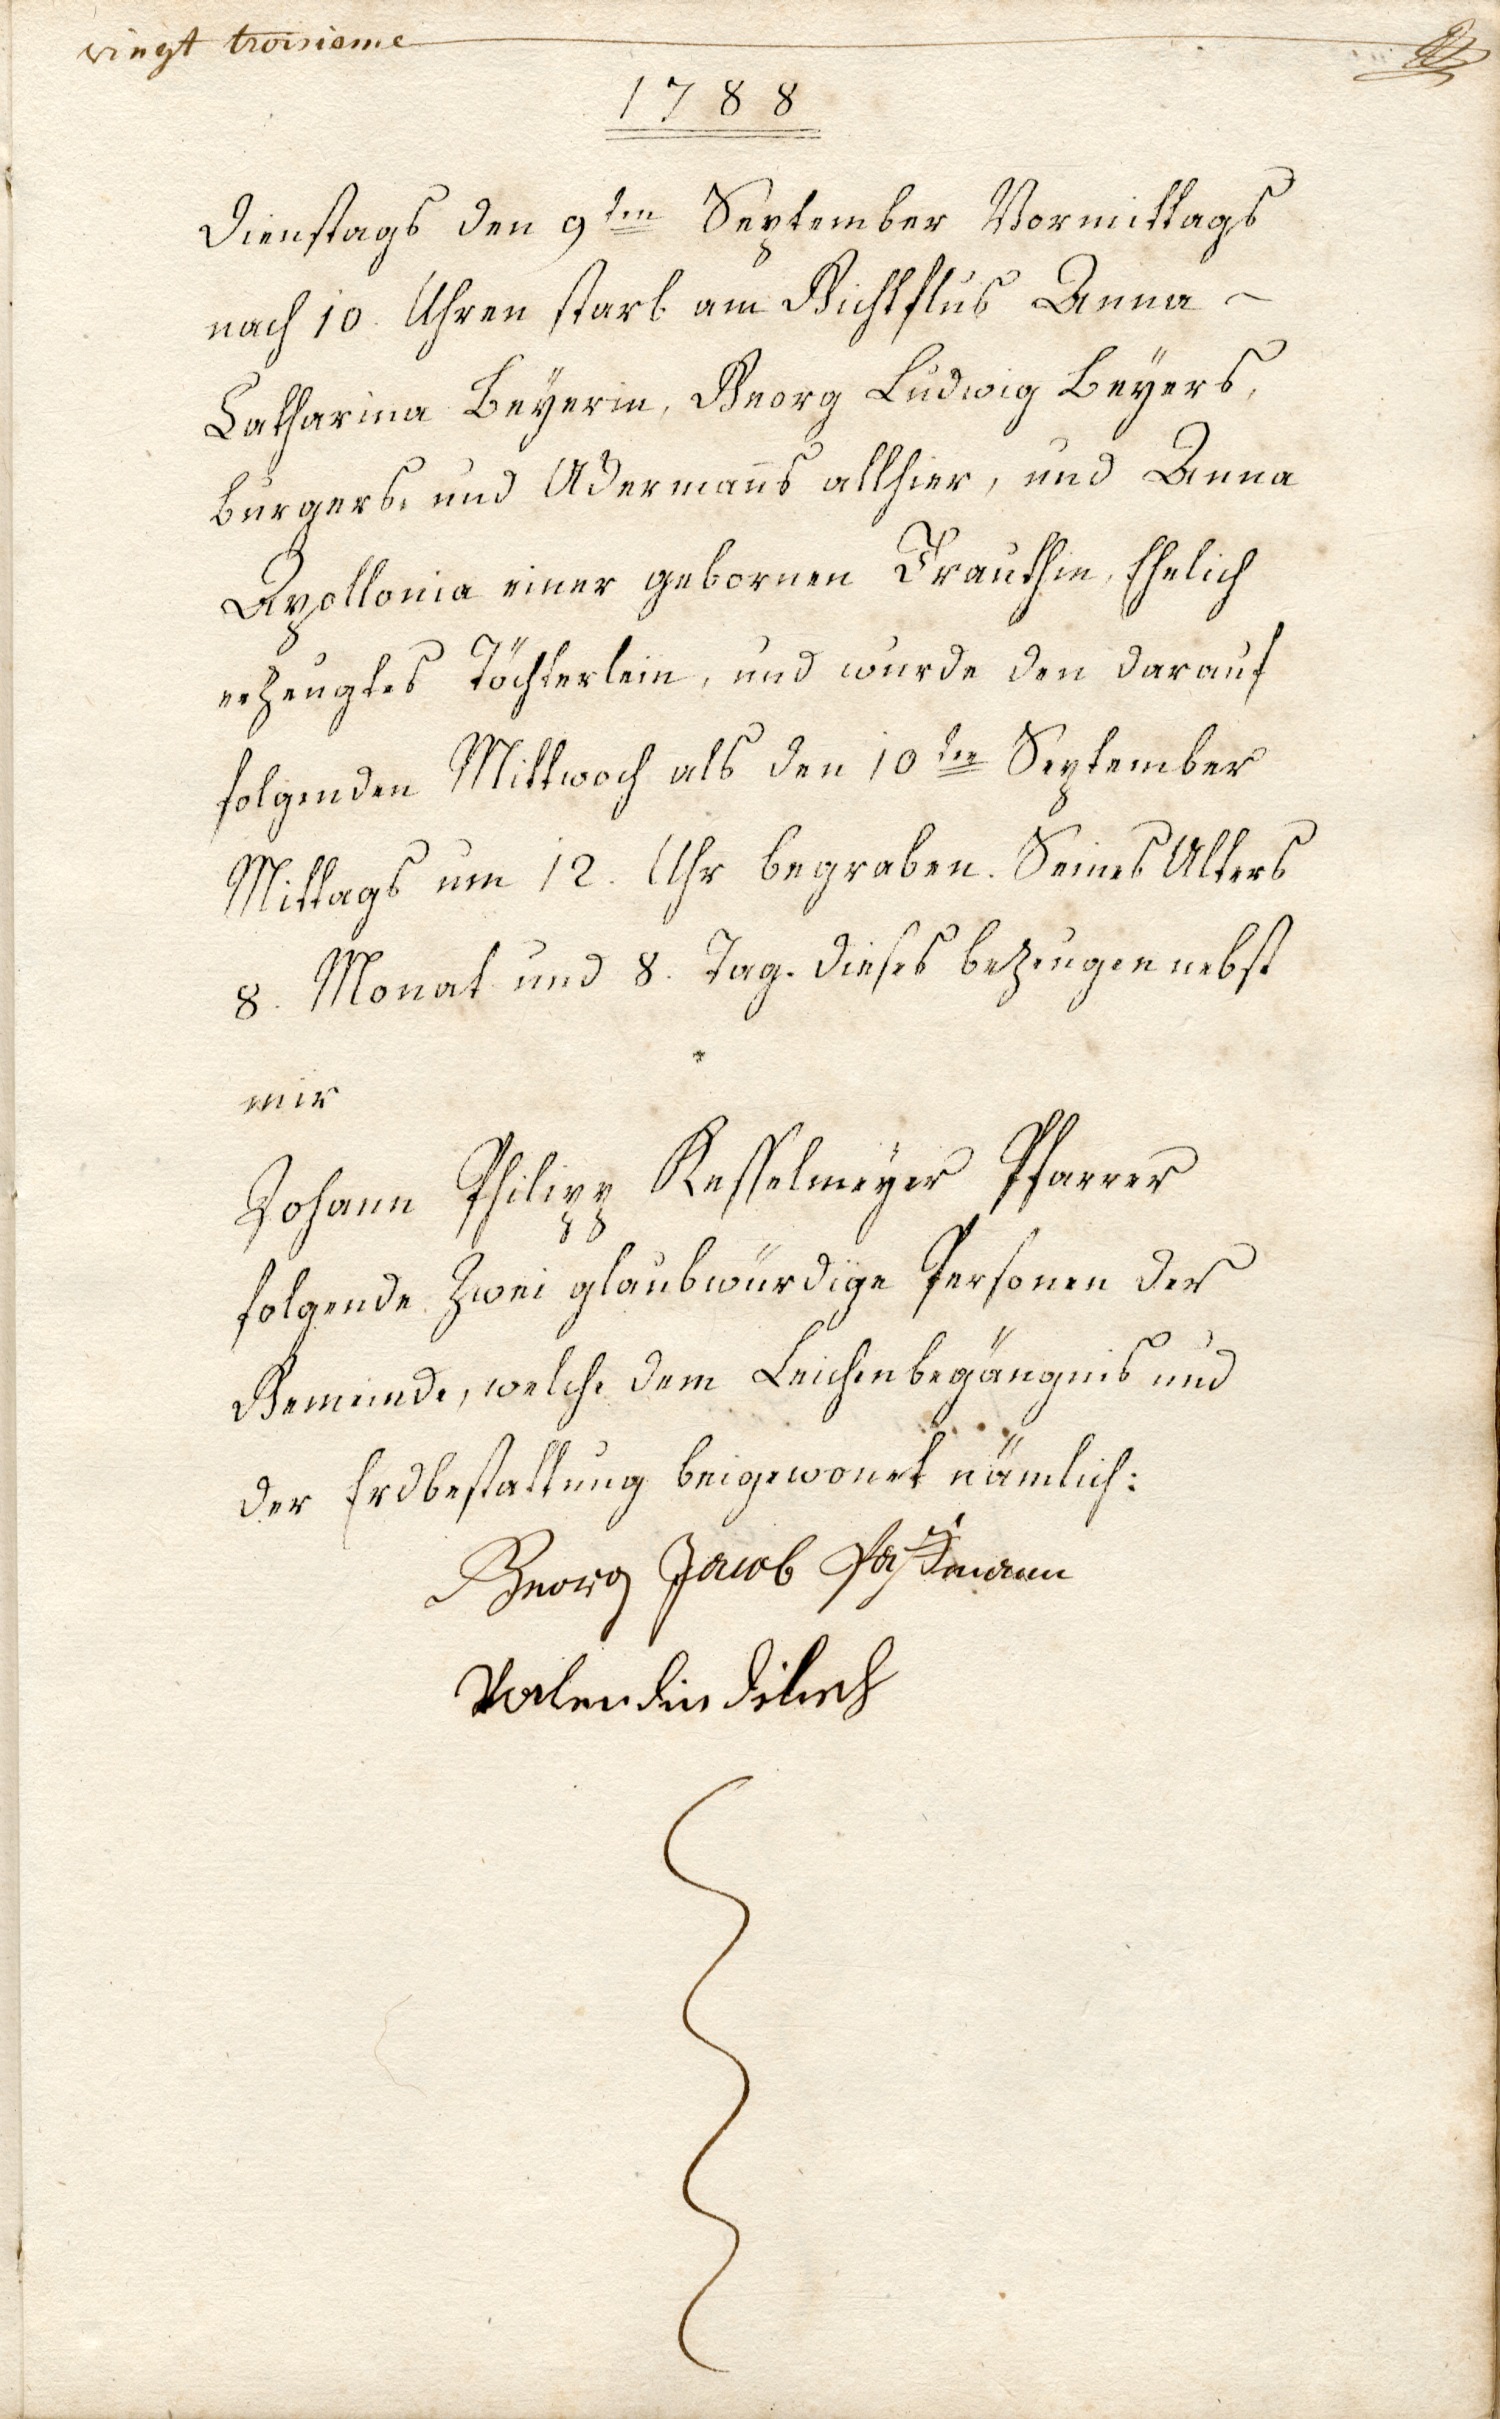 vingt troisieme
1788
Dienstags den 9ten September Vormittags
nach 10. Uhren starb am Gichtflus Anna
Catharina Beÿerin, Georg Ludwig Beÿers,
burgers und Adermans allhier, und Anna
Apollonia einer gebornen Trauthin, Ehelich
erzeugtes Töchterlein, und wurde den darauf
folgenden Mittwoch als den 10ten September
Mittags um 12. Uhr begraben. Seines Alters
8. Monat und 8. Tag. dieses bezeugen nebst
mir
Johann Philipp Kesselmeÿer Pfarrer
folgende zwei glaubwürdige Personen der
Gemeinde, welche dem Leichenbegängnis und
der Erdbestattung beigewont nämlich:
Georg Jacob
Valendin